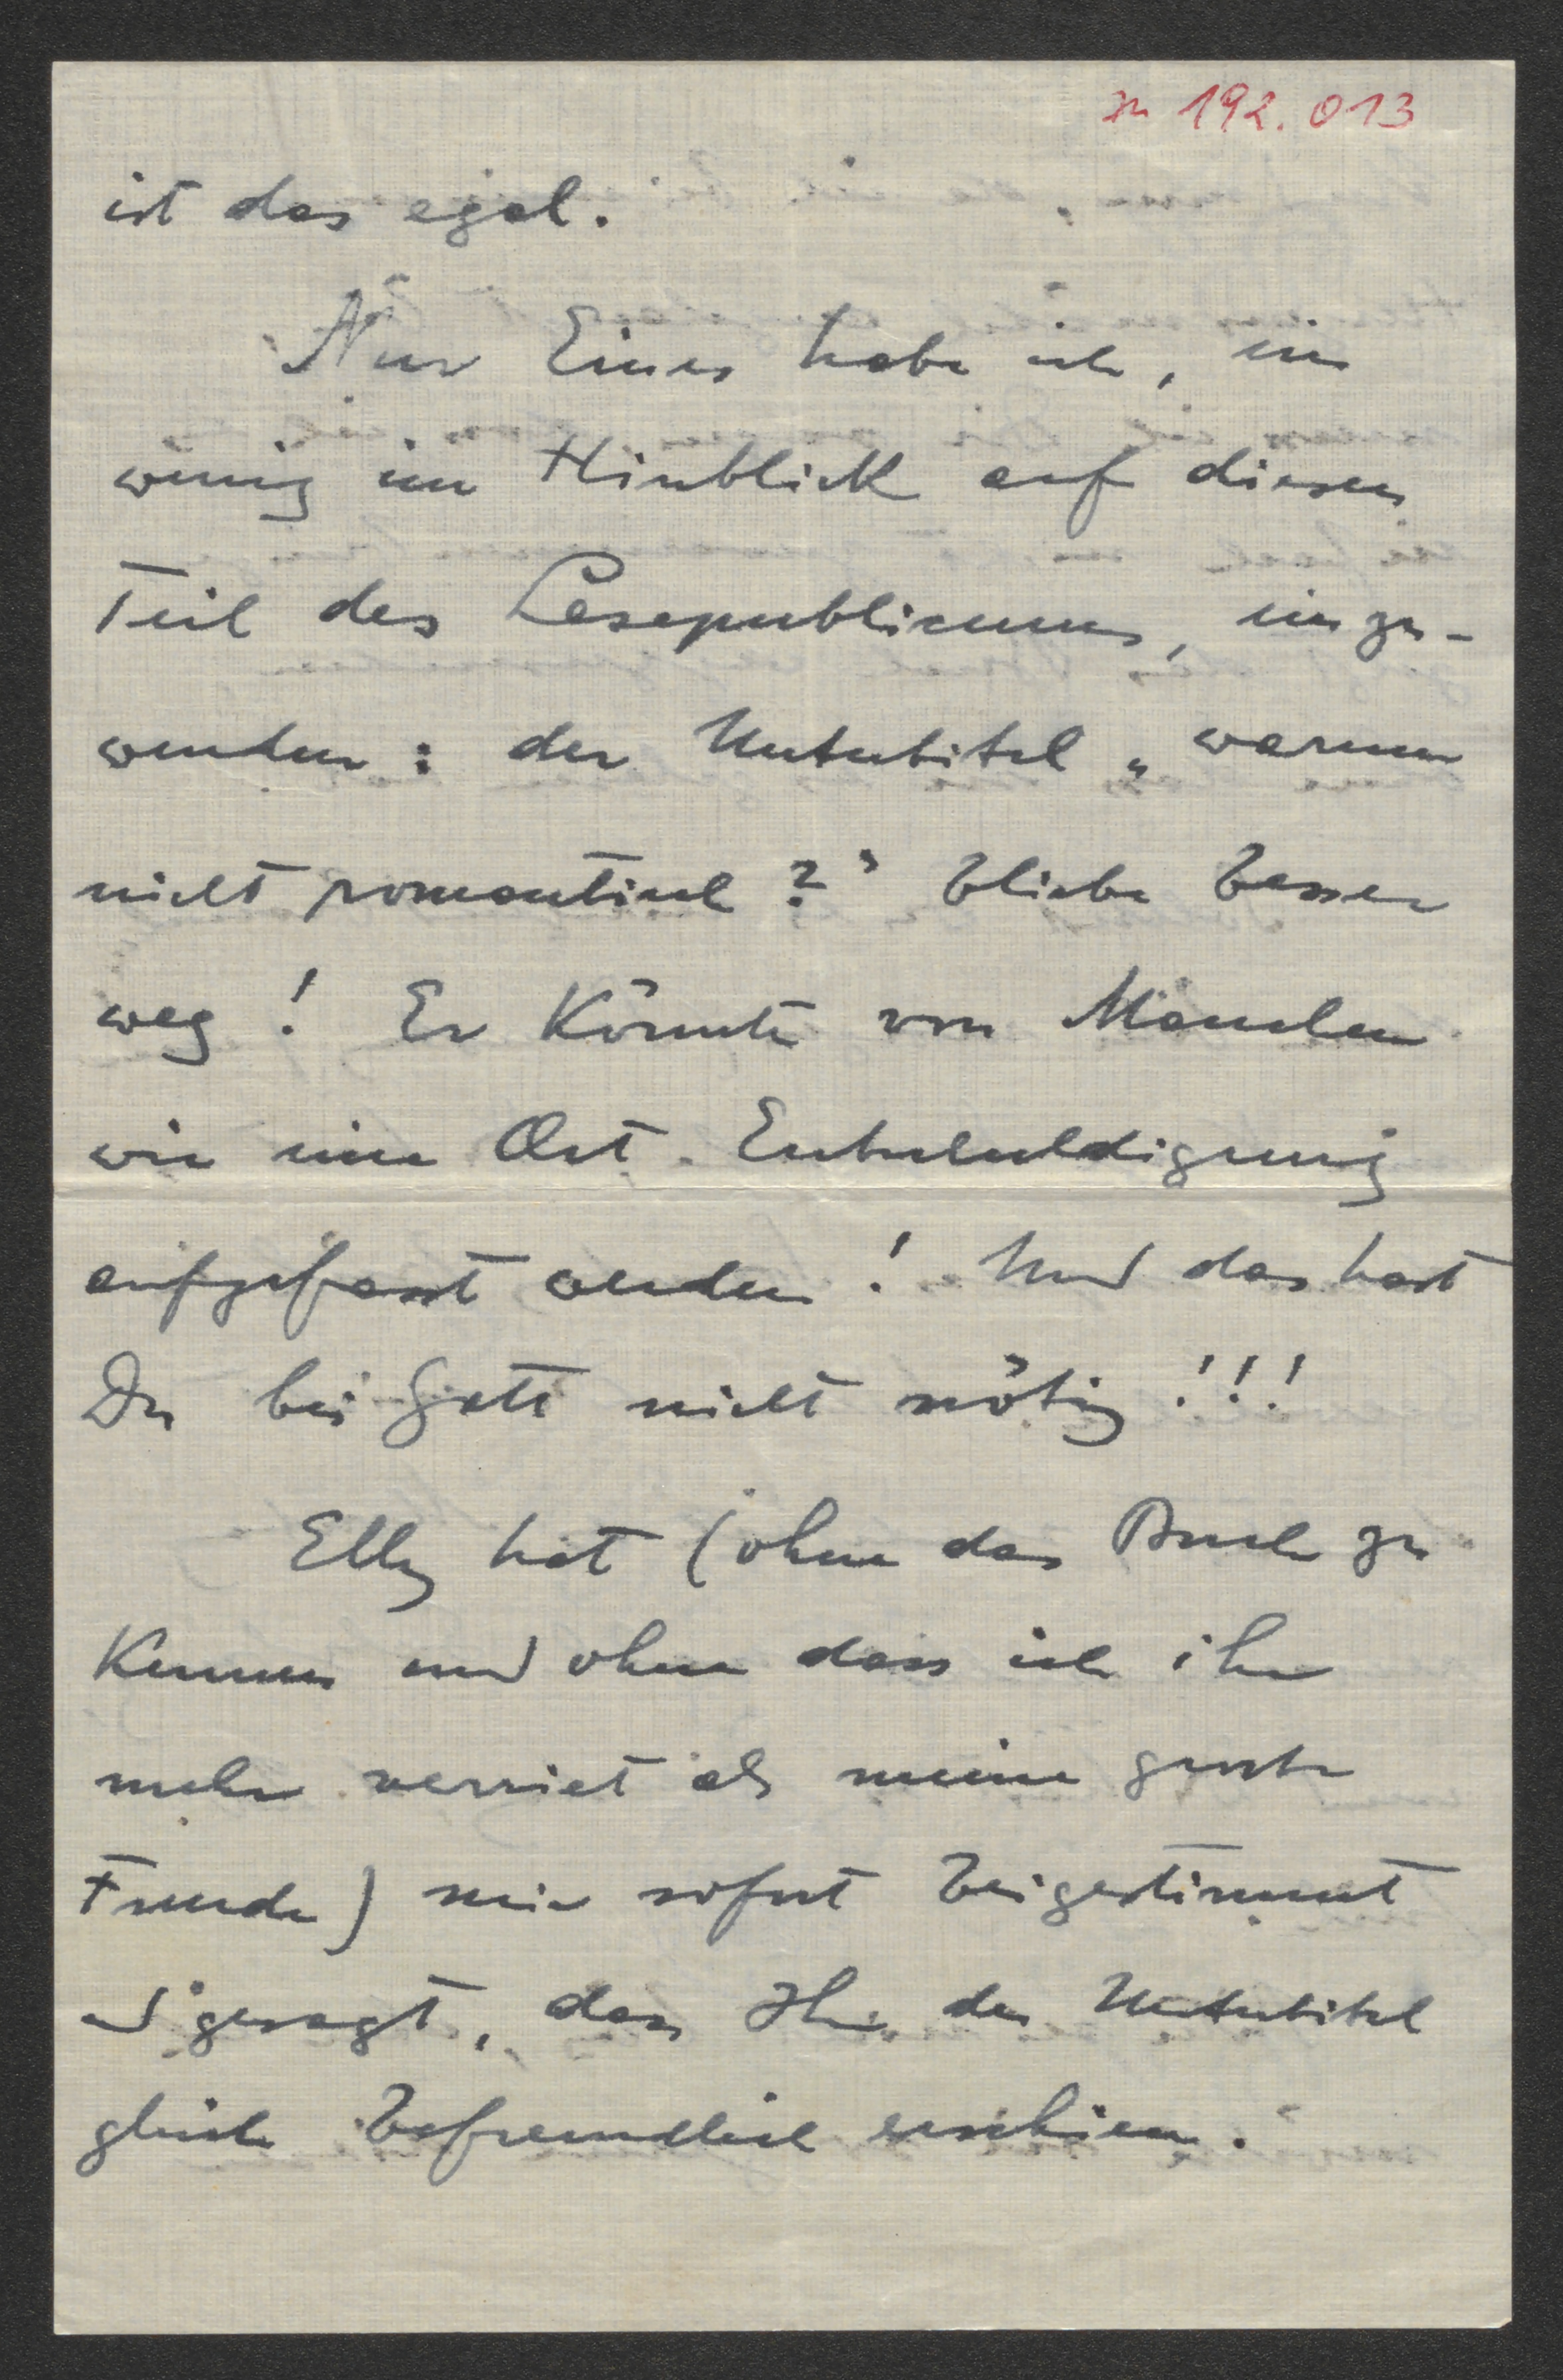 zu 192.013
ist das egal.
Nur Eines habe ich, ein
wenig im Hinblick auf diesen
Teil des Lesepublicums, einzu-
wenden: der Untertitel „warum
nicht romantisch?" bliebe besser
weg! Er könnte von Manchen
wie eine Art Entschuldigung
aufgefasst werden! Und das hast
Du bei Gott nicht nötig!!!
Elly hat (ohne das Buch zu
kennen und ohne dass ich ihr
mehr verriet als meine grosse
Freude) mir sofort beigestimmt
und gesagt, dass Ihr der Untertitel
gleich befremdlich erschien.